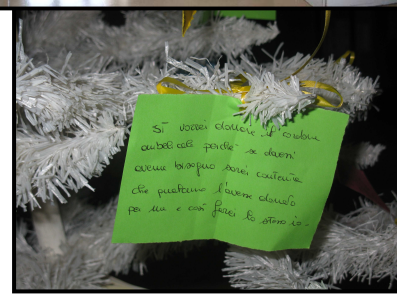 Sì vorrei donare il cordone
ombelicale perché se dovessi
averne bisogno sarei contenta
che qualcuno l'avesse donato
per me e così farei lo stesso io.